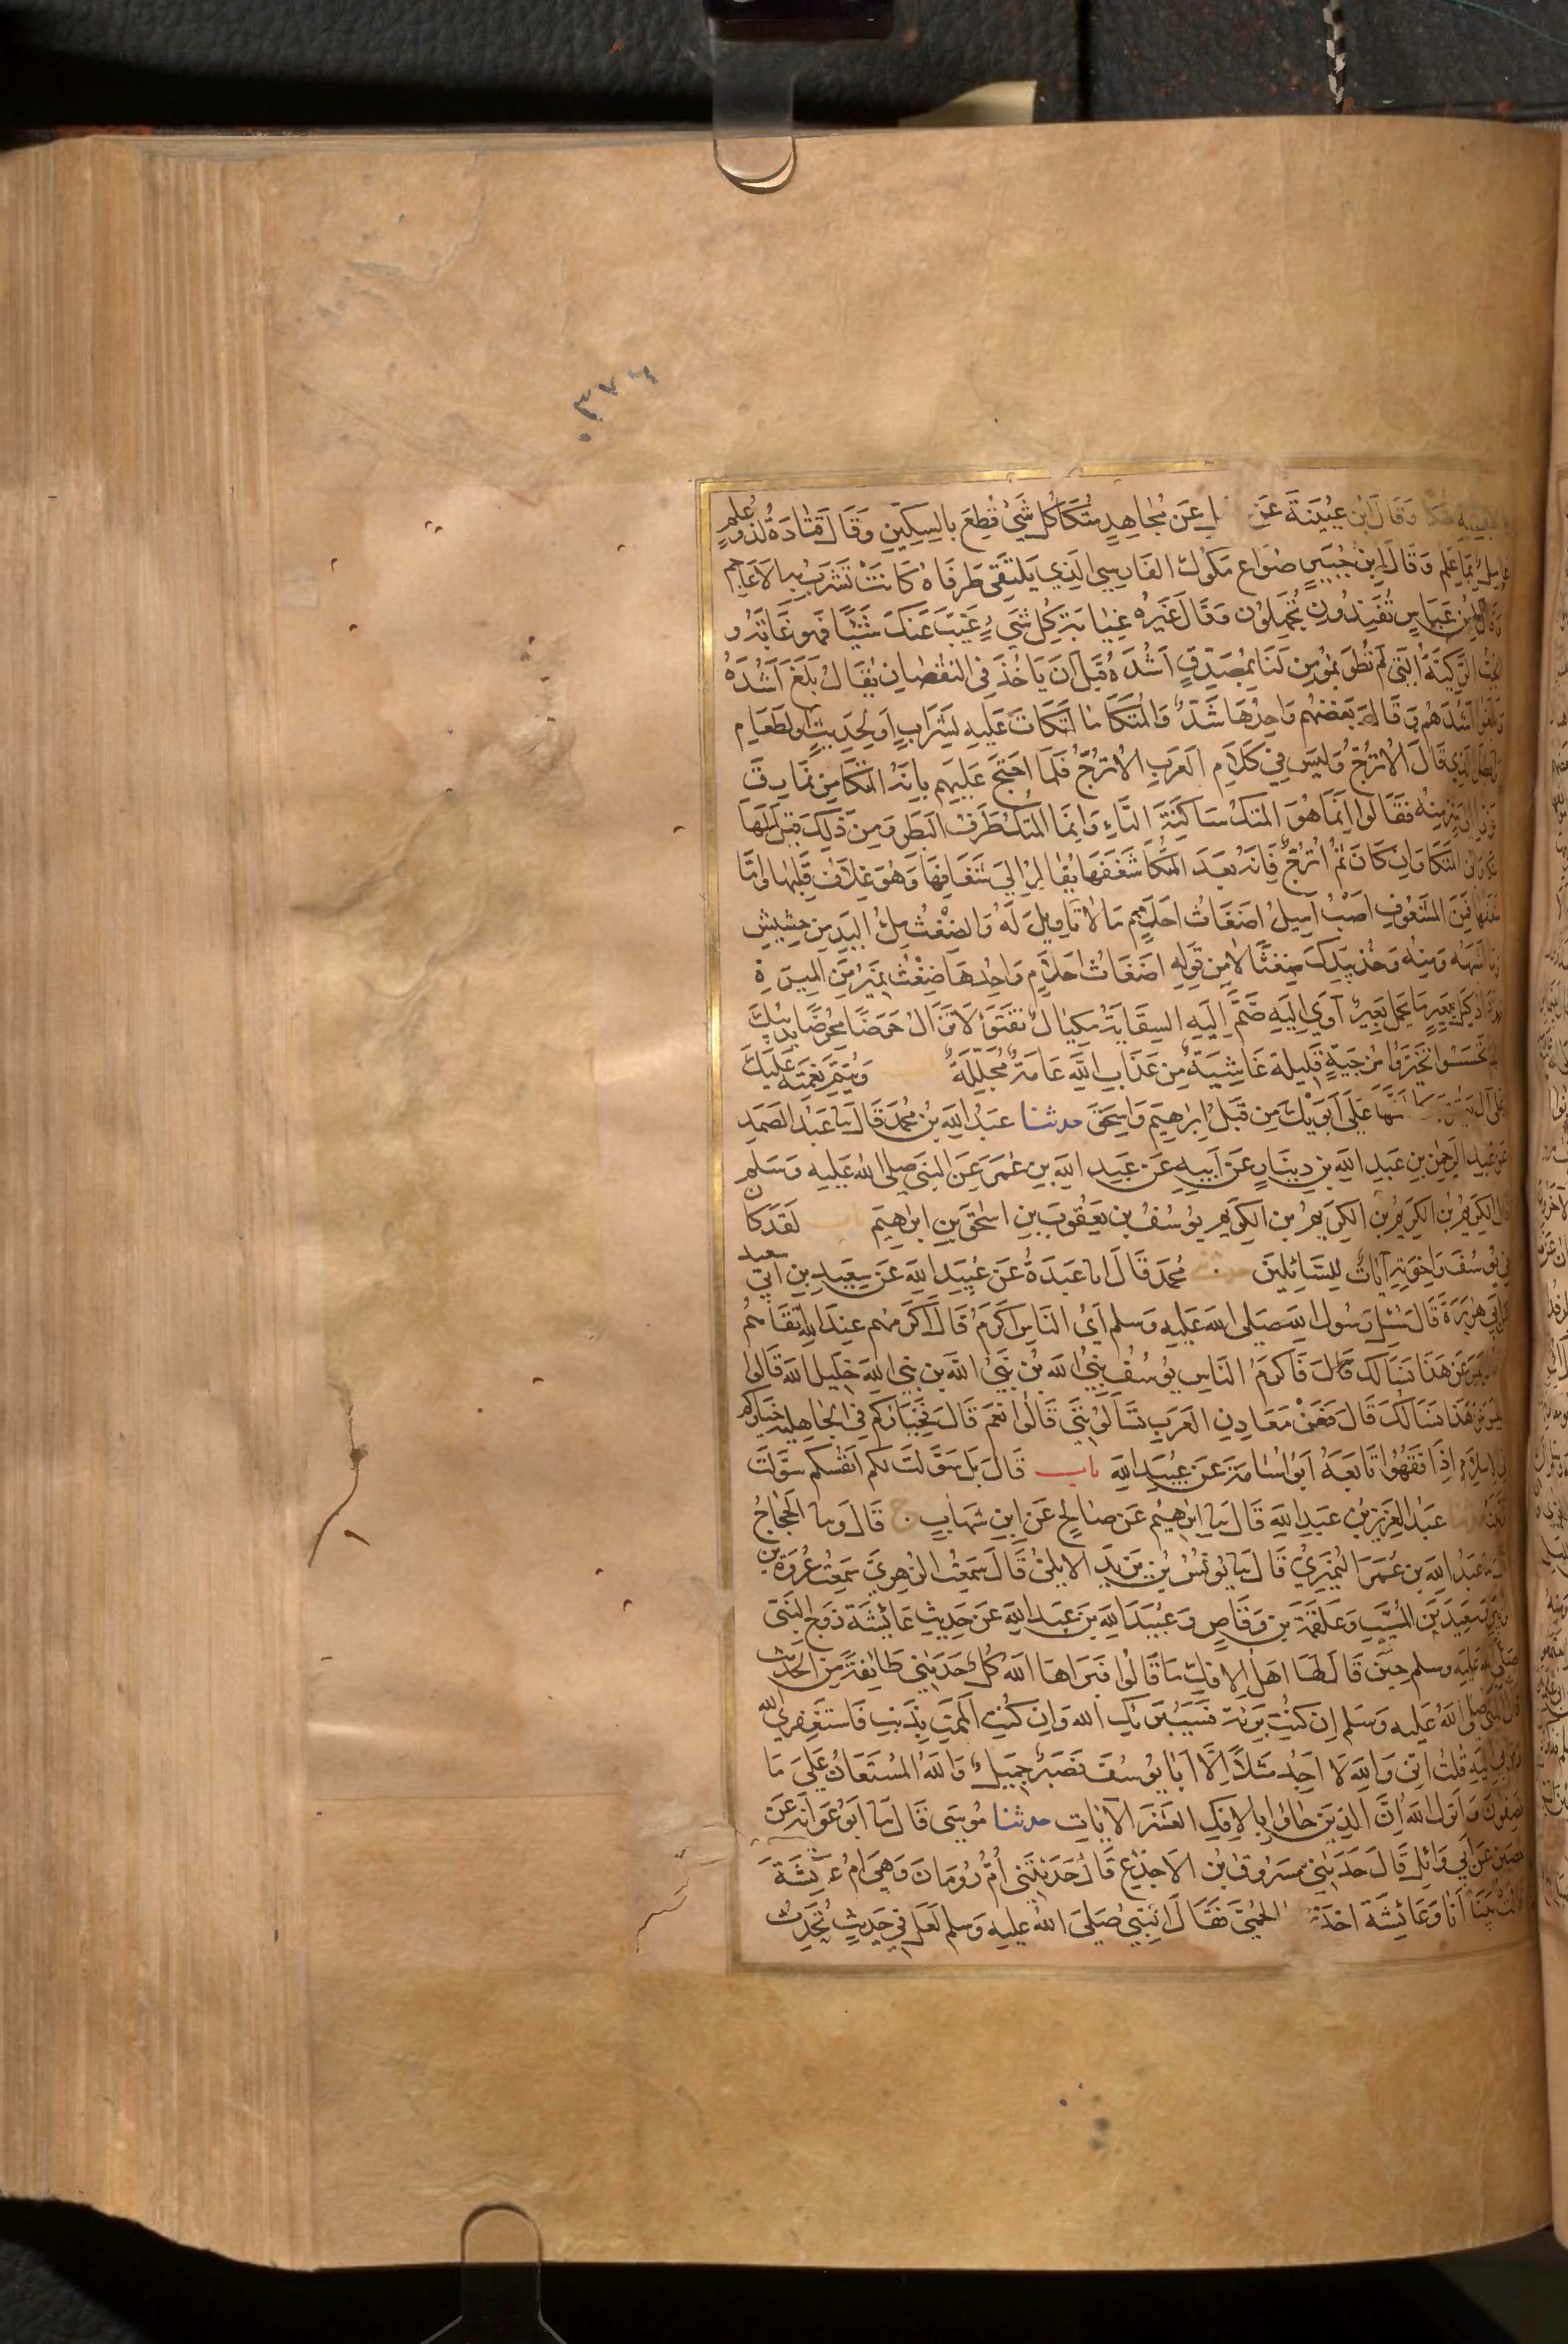 ٣٧٦
بالحبشية متكا وقال ابن عيينة عن رجل عن مجاهد متكا كل شئ قطع بالسكين وقال قتادة لذو علم
عامل بما علم وقال ابن جبير صواع مكوك الفارسي الذي يلتقى طرفاه كانت تشرب به الاعاجم
وقال ابن عباس تفندون تجهلون وقال غيره غيابة كل شيء غيب عنك شيئا فهو غيابة و
الجب الركية التي لم تطو بمؤمن لنا بمصدق اشده قبل ان ياخذ في النقصان يقال بلغ اشده
وبلغوا اشدهم وقال بعضهم واحدها شد والمتكا ما اتكات عليه لشراب او لحديث او لطعام
وابطل الذي قال الاترج وليس في كلام العرب الاترج فلما احتج عليهم بانه المتكا من نمارق
فروا الى شر منه فقالوا انما هو المتك ساكنة التاء وانما المتك طرف البظر ومن ذلك قيل لها
متكا وابن المتكا وان كان ثم اترج فانه بعد المتكا شغفها يقال الى شغافها وهو غلاف قلبها واما
شعفها فمن المشعوف اصب اميل اضغاث احلام ما لا تاويل له والضغث ملء اليد من حشيش
وما اشبهه ومنه وخذ بيدك ضغثا لا من قوله اضغاث احلام واحدها ضغث نمير من الميرة
ونزداد كيل بعير ما يحمل بعير آوى اليه ضم اليه السقاية مكيال تفتؤ لا تزال حرضا محرضا يذيبك
الهم تحسسوا تخبروا مزجية قليلة غاشية من عذاب الله عامة مجللة ويتم نعمته عليك
وعلى آل يعقوب كما اتمها على ابويك من قبل ابراهيم واسحق حدثنا عبد الله بن محمد قال نا عبد الصمد
عن عبد الرحمن بن عبد الله بن دينار عن ابيه عن عبد الله بن عمر عن النبي صلى الله عليه وسلم
قال الكريم بن الكريم بن الكريم بن الكريم يوسف بن يعقوب بن اسحق بن ابراهيم باب لقد كان
في يوسف واخوته آيات للسائلين محمد قال انا عبدة عن عبيد الله عن سعيد بن ابي سعيد
عن ابي هريرة قال سئل رسول الله صلى الله عليه وسلم اي الناس اكرم قال اكرمهم عند الله اتقاهم
قالوا ليس عن هذا نسالك قال فاكرم الناس يوسف نبي الله بن نبي الله بن نبي الله بن خليل الله قالوا
ليس عن هذا نسالك قال فعن معادن العرب تسالونني قالوا نعم قال فخياركم في الجاهلية خياركم
في الاسلام اذا فقهوا تابعه ابو اسامة عن عبيد الله باب قال بل سولت لكم انفسكم سولت
زينت حدثنا عبد العزيز بن عبد الله قال نا ابراهيم عن صالح عن ابن شهاب ح قال ونا الحجاج
قال نا عبد الله بن عمر النميري قال نا يونس بن يزيد الايلي قال سمعت الزهري سمعت عروة بن
الزبير وسعيد بن المسيب وعلقمة بن وقاص وعبيد الله بن عبد الله عن حديث عائشة زوج النبي
صلى الله عليه وسلم حين قال لها اهل الافك ما قالوا فبراها الله كل حدثني طائفة من الحديث
قال النبي صلى الله عليه وسلم ان كنت بريئة فسيبرئك الله وان كنت الممت بذنب فاستغفري الله
وتوبي اليه قلت اني والله لا اجد مثلا الا ابا يوسف فصبر جميل والله المستعان على ما
تصفون وانزل الله ان الذين جاؤا بالافك العشر الآيات حدثنا موسى قال نا ابو عوانة عن
حصين عن ابي وائل قال حدثني مسروق بن الاجدع قال حدثتني ام رومان وهي ام عائشة
قالت بينا انا وعائشة اخذتها الحمى فقال النبي صلى الله عليه وسلم لعل في حديث تحدث